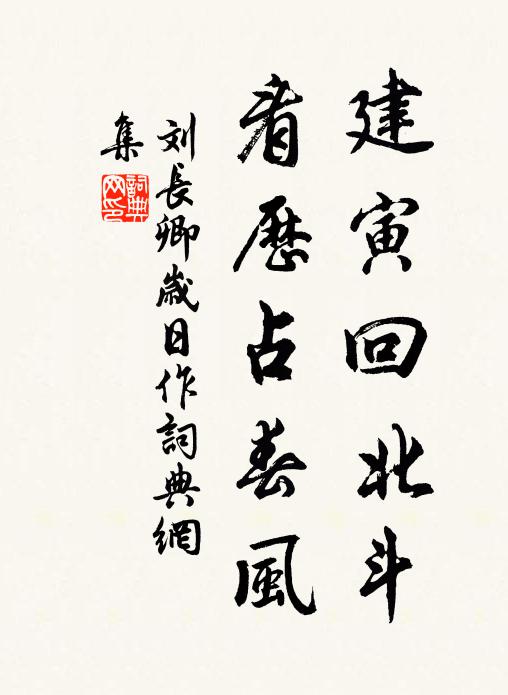 建寅回北斗
看歷占春風
刘長卿歳日作詞典網
集
詞典网印